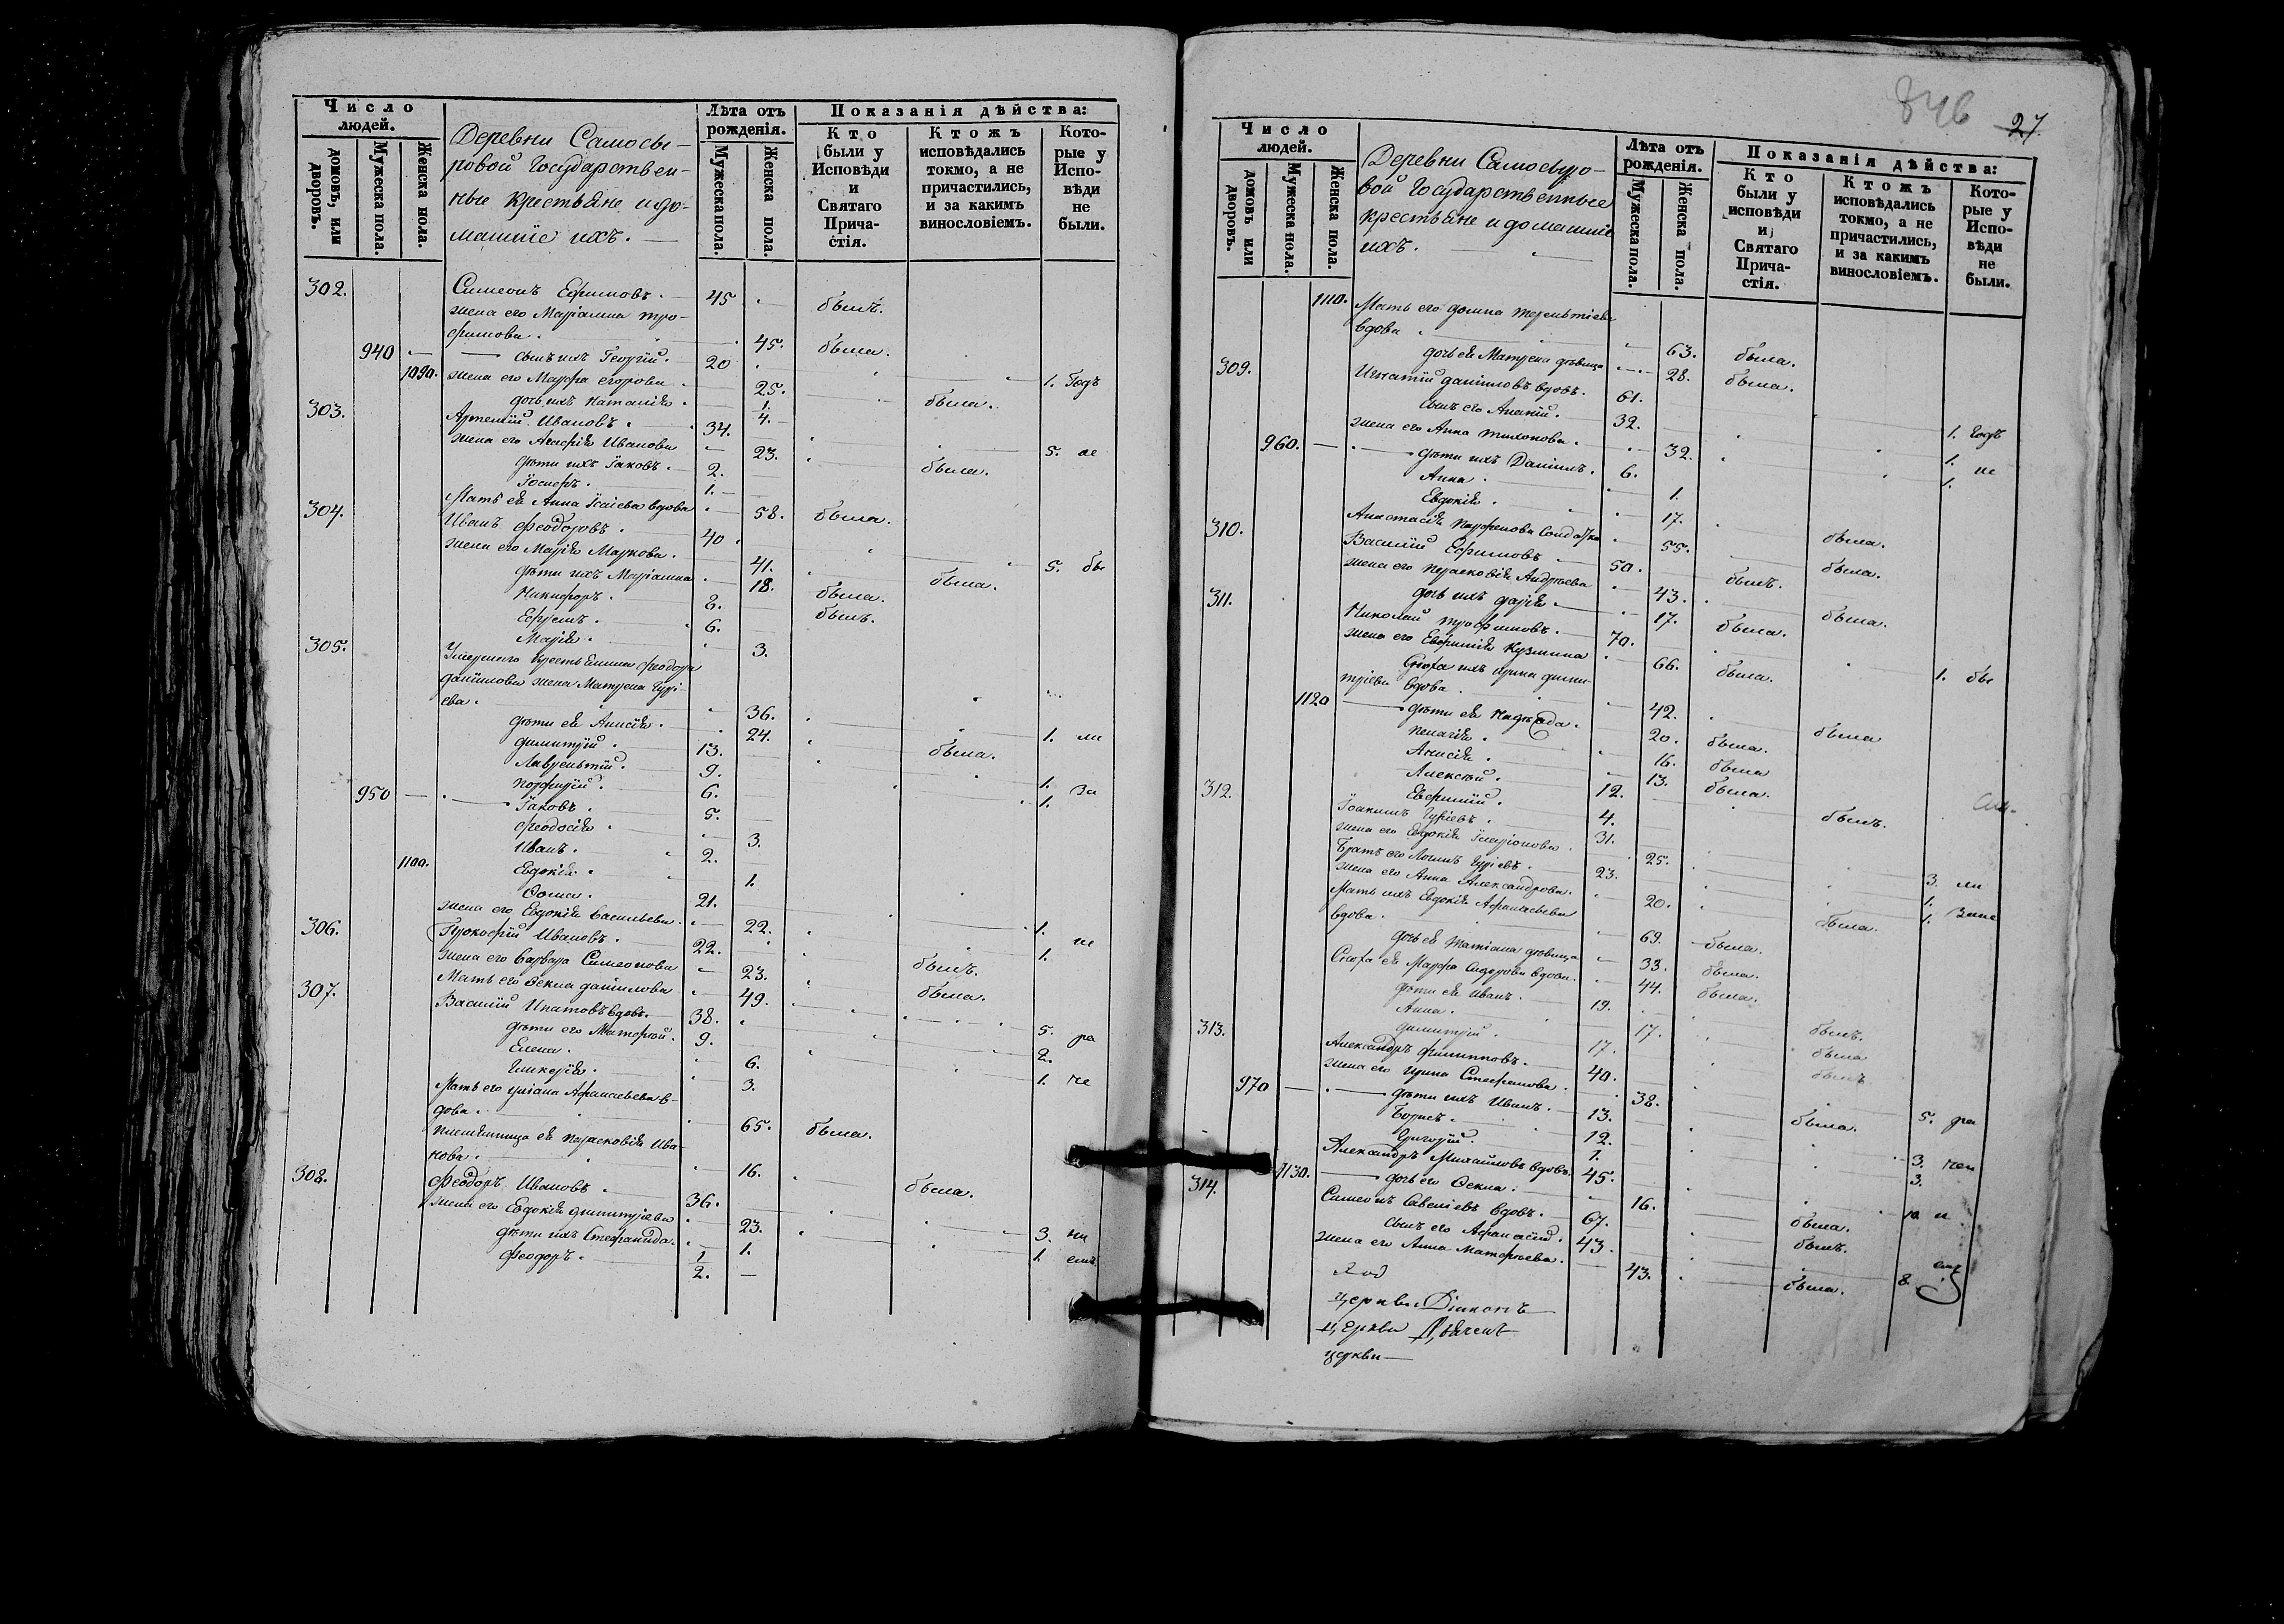 Число людей.
домовъ, или дворовъ.
Мужеска пола.
Женска пола.
Деревни Самосы-
ровой Государствен-
ные крестьяне и до-
машніе ихъ.
Лѣта отъ рожденія.
Мужеска пола.
Женска пола.
Показанія дѣйства:
Кто были у Исповѣди и Святаго Прича-стія.
Ктожъ исповѣдались токмо, а не причастились, и за какимъ винословіемъ.
Кото-рые у Испо-вѣди не были.
302. Симеонъ Ефимовъ. 45 былъ.
жена его Маріамна Тро-
фимова. 45. была.
940 сынъ ихъ Георгій. 20 1. Годъ
1090. жена его Марфа Егорова. 25. была.
дочь ихъ Наталія. 1/4.
303. Артемій Ивановъ. 34. 5. не
жена его Агафія Иванова 23. была.
дѣти ихъ Іаковъ. 2.
Іосифъ. 1.
Мать ея Анна Исаіева вдова 58. была.
304. Иванъ Феодоровъ. 40 5. бы
жена его Марія Маркова. 41. была.
дѣти ихъ Маріамна 18. была.
Никифоръ. 8. былъ.
Ефремъ. 6.
Марія. 3.
305. Умершаго крестьянина Феодора
Даніилова жена Матрена Гурі-
ева. 36. 1. ли
дѣти ея Анисія. 24. была.
Димитрій. 13. 1. За
Лаврентій. 9. 1.
Порфирій. 6.
950 Іаковъ. 5.
Феодосія. 3.
Иванъ. 2.
1100. Евдокія. 1.
Фома. 21. 1.
жена его Евдокія Васильева. 22. 1. не
306. Прокофій Ивановъ. 22. былъ.
жена его Варвара Симеонова 23. была.
Мать его Фекла Даніилова 49.
307. Василій Ипатовъ вдовъ. 38. 5. ра
дѣти его Матфей. 9. 2.
Елена. 6. 1. че
Гликерія. 3.
Мать его Уліана Афанасьева в-
дова. 65. была.
племянница ея Парасковія Ива-
нова. 16. была.
308. Феодоръ Ивановъ. 36. 3. ни
жена его Евдокія Димитріева 23. 1. емъ.
дѣти ихъ Стефанида. 1.
Феодоръ. 1/2.
846
27.
Число людей.
домовъ или дворовъ.
Мужеска пола.
Женска пола.
Деревни Самосыро-
вой Государственные
крестьяне и домашніе
ихъ.
Лѣта отъ рожденія.
Мужеска пола.
Женска пола.
Показанія дѣйства:
Кто были у исповѣди и Святаго Прича-стія.
Ктожъ исповѣдались токмо, а не причастились, и за какимъ винословіемъ.
Кото-рые у Испо-вѣди не были.
1110. Мать его Домна Терентіева
вдова 63. была.
дочь ея Матрена дѣвица 28. была.
309. Игнатій Даніиловъ вдовъ. 61. 1. годъ
сынъ его Ананій. 32. 1. не
жена его Анна Тихонова. 32. 1.
960. дѣти ихъ Даніилъ. 6.
Анна. 1.
Евдокія. 17. была.
Анастасія Парфенова солдатка 55. была.
310. Василій Ефимовъ 50. былъ.
жена его Парасковія Андреева 43. была.
дочь ихъ Дарія. 17. была.
311. Николай Трофимовъ. 70. 1. бы
жена его Евфимія Кузмина 66. была.
Сноха ихъ Ирина Дими-
тріева вдова. 42. была
1120 дѣти ея Надежда. 20. была.
Пелагія. 16. была
Анисія. 13. была.
Алексей. 12. былъ.
Евфимій. 4.
312. Іоакимъ Гуріевъ. 31. 3. ли
жена его Евдокія Иларіонова. 25. 1.
Братъ его Логинъ Гуріевъ. 23. 1. Зане
жена его Анна Александрова. 20. была.
Мать ихъ Евдокія Афанасьева
вдова. 69. была.
дочь ея Татіана дѣвица 33. была.
Сноха ея Марфа Сидорова вдова. 44. была.
дѣти ея Иванъ. 19. былъ.
Анна. 17. была
Димитрій. 17. былъ
313. Александръ Филипповъ. 40. 5. ра
жена его Ирина Стефанова. 38. была.
970 дѣти ихъ Иванъ. 13. 3. чен
Борисъ. 12. 3.
Григорій. 1.
Александръ Михайловъ вдовъ. 45. 10 и
1130. дочь его Фекла. 16. была.
314. Симеонъ Савеліевъ вдовъ. 67. былъ.
сынъ его Афанасій. 43. 8. емъ
жена его Анна Матфеева. 43. была.
церкви Діаконъ
церкви Дьячекъ
церкви